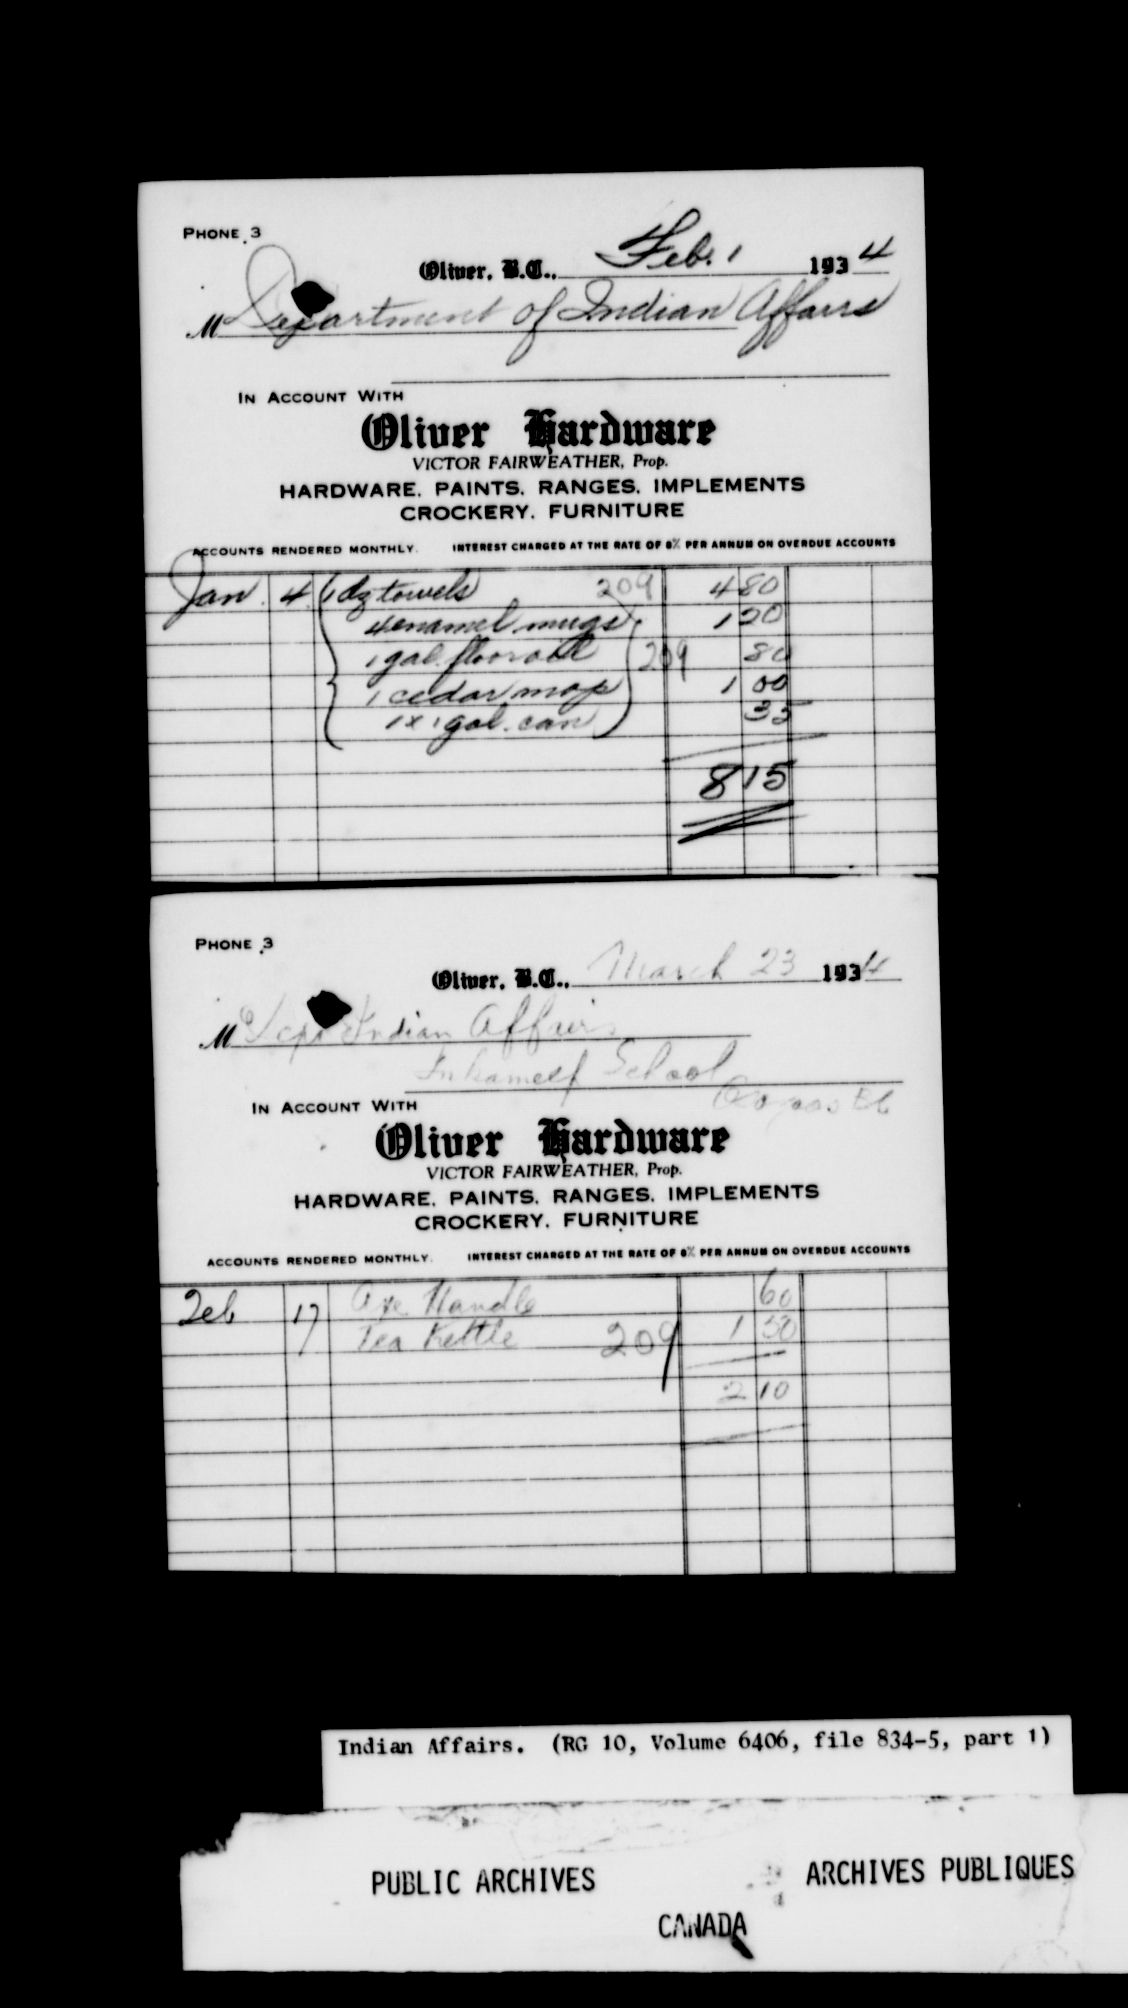 PHONE 3
Oliver, B.C., Feb. 1 1934
M Department of Indian Affairs
IN ACCOUNT WITH
Oliver Hardware
VICTOR FAIRWEATHER, Prop.
HARDWARE. PAINTS. RANGES. IMPLEMENTS
CROCKERY. FURNITURE
ACCOUNTS RENDERED MONTHLY. INTEREST CHARGED AT THE RATE OF 8% PER ANNUM ON OVERDUE ACCOUNTS
Jan 4 1 dz towels 209 4 80
4 enamel mugs 1 20
1 gal. floor oil 209 80
1 cedar mop 1 00
1 x 1 gal. can 35
8 15
PHONE 3
Oliver, B.C., March 23 1934
M Dept Indian Affairs
Inkameep School
IN ACCOUNT WITH
Oliver Hardware
VICTOR FAIRWEATHER, Prop.
HARDWARE. PAINTS. RANGES. IMPLEMENTS
CROCKERY. FURNITURE
ACCOUNTS RENDERED MONTHLY. INTEREST CHARGED AT THE RATE OF 8% PER ANNUM ON OVERDUE ACCOUNTS
Feb 17 Axe Handle 60
Tea Kettle 209 1 50
2 10
Indian Affairs. (RG 10, Volume 6406, file 834-5, part 1)
PUBLIC ARCHIVES ARCHIVES PUBLIQUES
CANADA